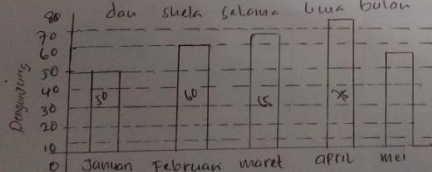 dan shela selama lima bulan
80
70
60
50
40
30
20
10
0
50
60
Januari Februari maret april mei